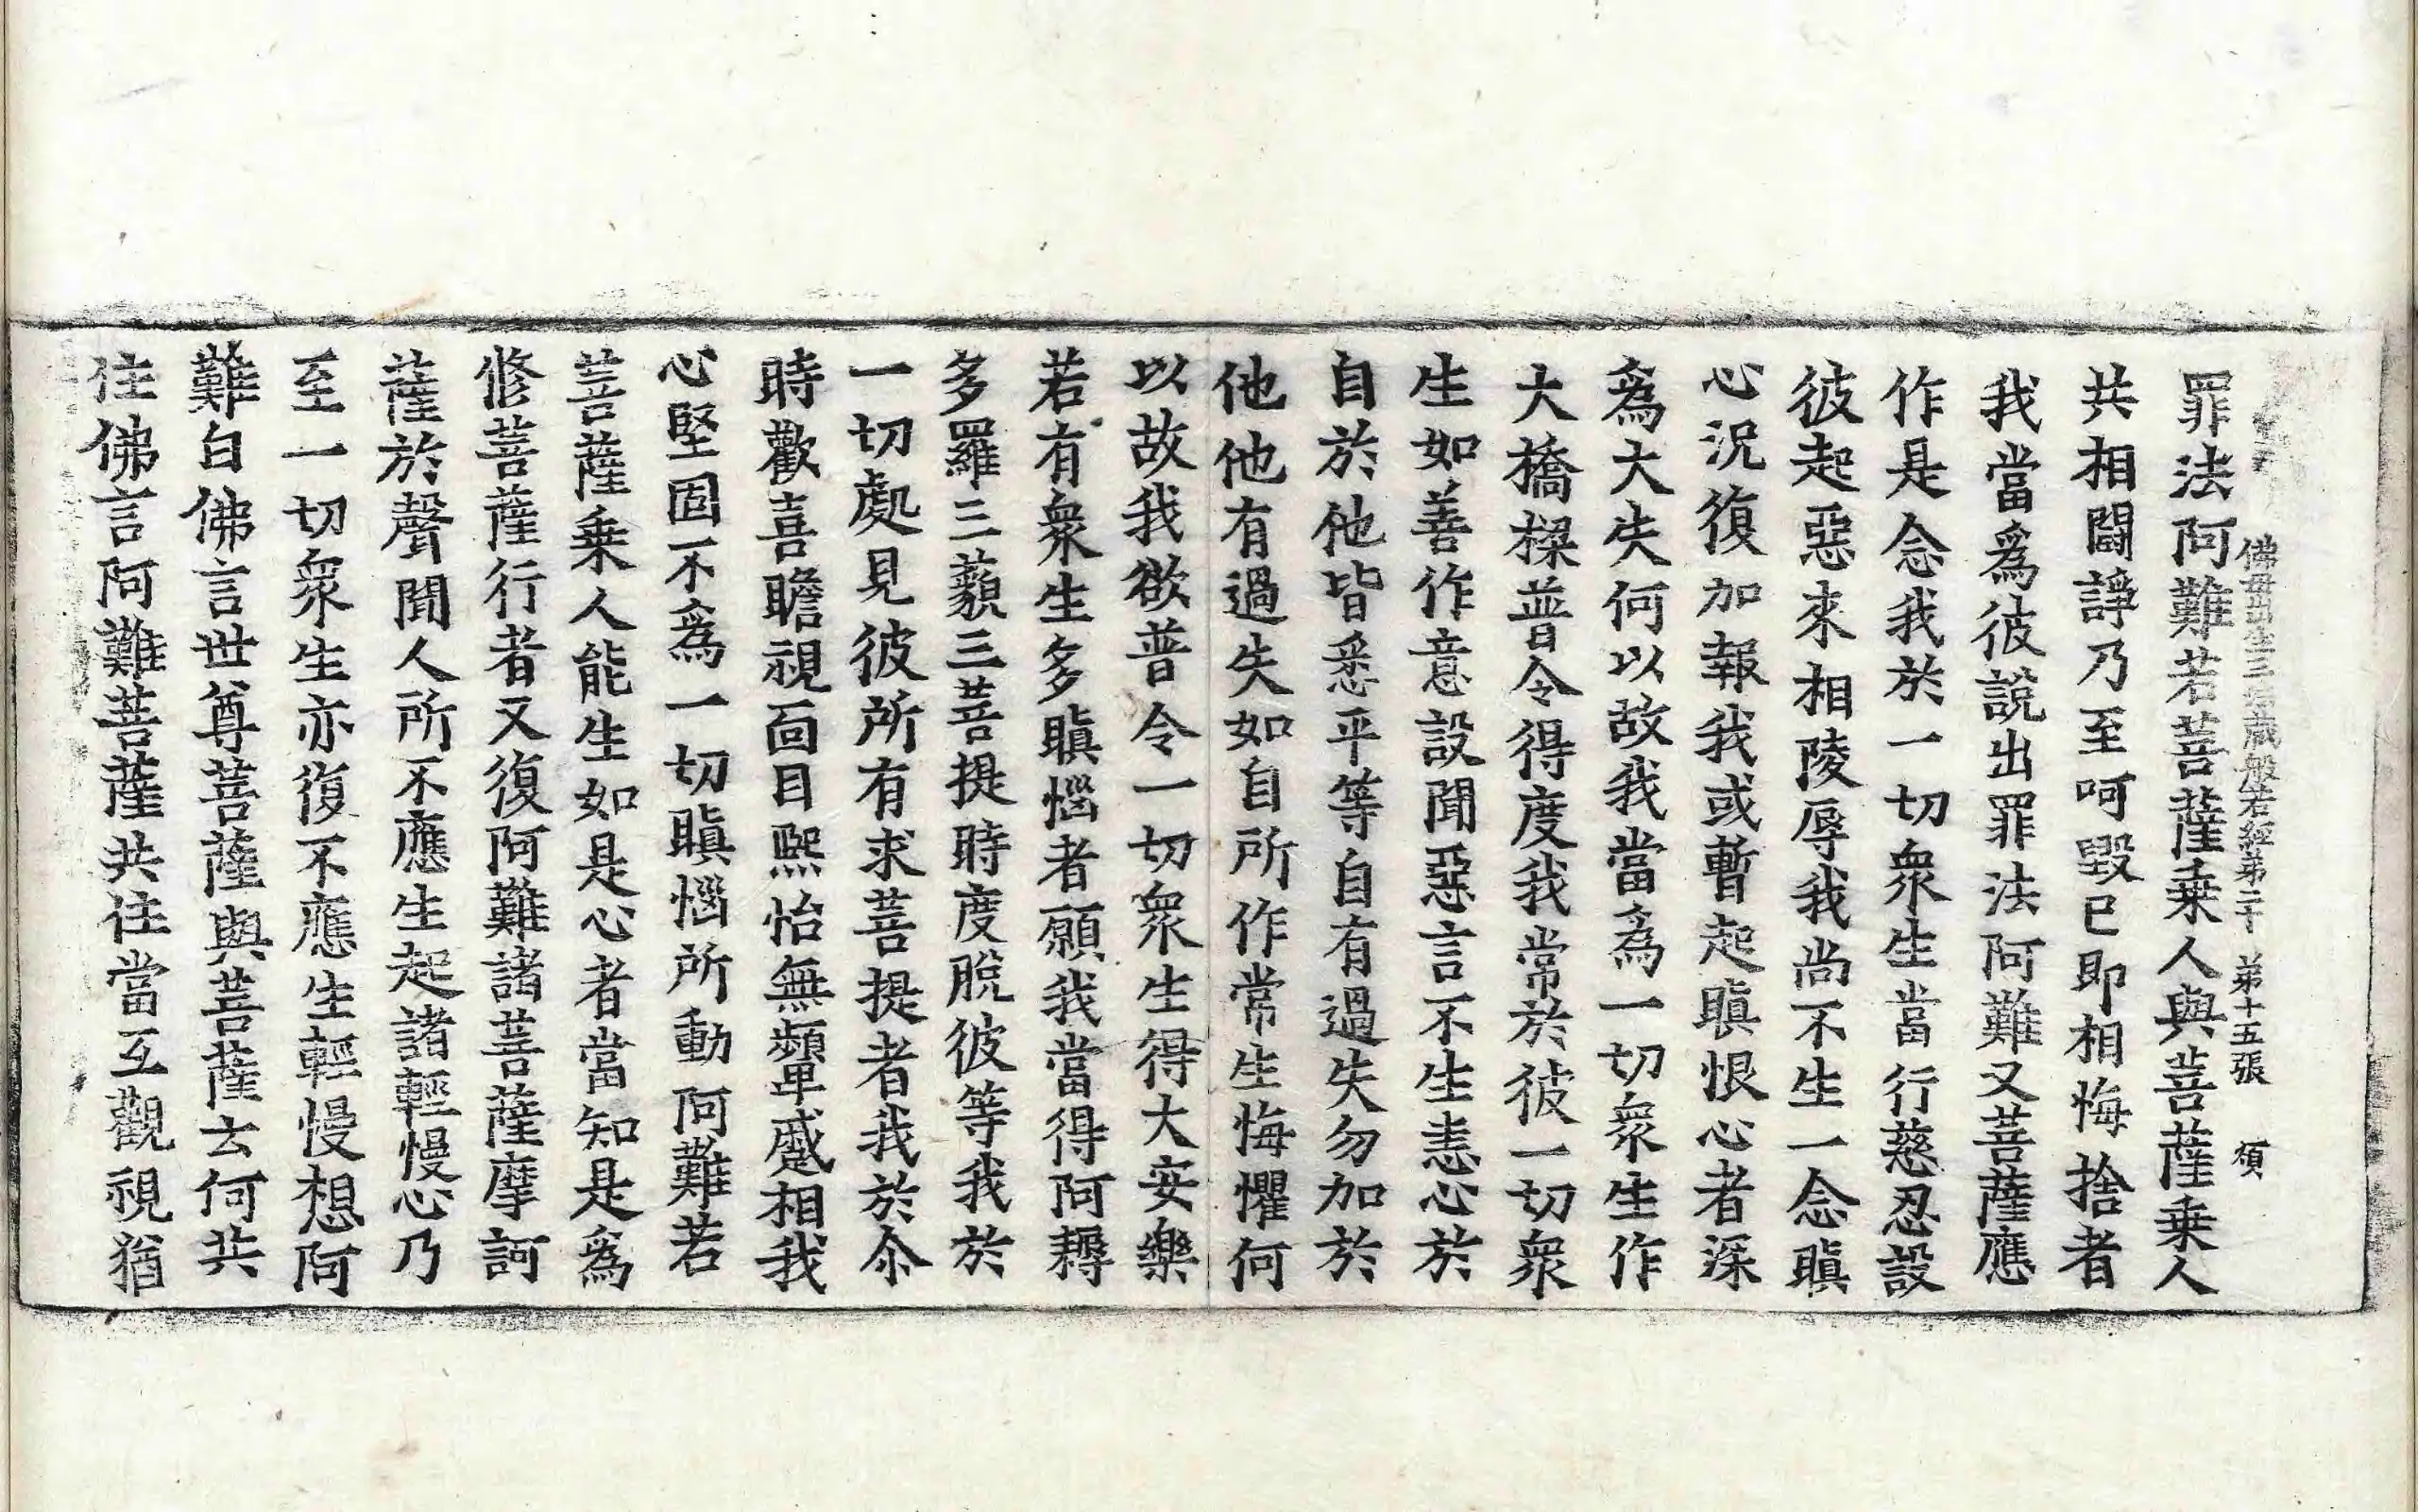 佛母出生三法藏般若經第二十　第十五張　傾
罪法阿難若菩薩乘人與菩薩乘人
共相鬪諍乃至呵毀已即相悔捨者
我當爲彼說出罪法阿難又菩薩應
作是念我於一切衆生當行慈忍設
彼起惡來相陵辱我尚不生一念瞋
心況復加報我或暫起瞋恨心者深
爲大失何以故我當爲一切衆生作
大橋樑普令得度我常於彼一切衆
生如善作意設聞惡言不生恚心於
自於他皆悉平等自有過失勿加於
他他有過失如自所作常生悔懼何
以故我欲普令一切衆生得大安樂
若有衆生多瞋惱者願我當得阿耨
多羅三藐三菩提時度脫彼等我於
一切處見彼所有求菩提者我於尒
時歡喜瞻視面目熙怡無顰蹙相我
心堅固不爲一切瞋惱所動阿難若
菩薩乘人能生如是心者當知是爲
修菩薩行者又復阿難諸菩薩摩訶
薩於聲聞人所不應生起諸輕慢心乃
至一切衆生亦復不應生輕慢想阿
難白佛言世尊菩薩與菩薩云何共
住佛言阿難菩薩共住當互觀視猶